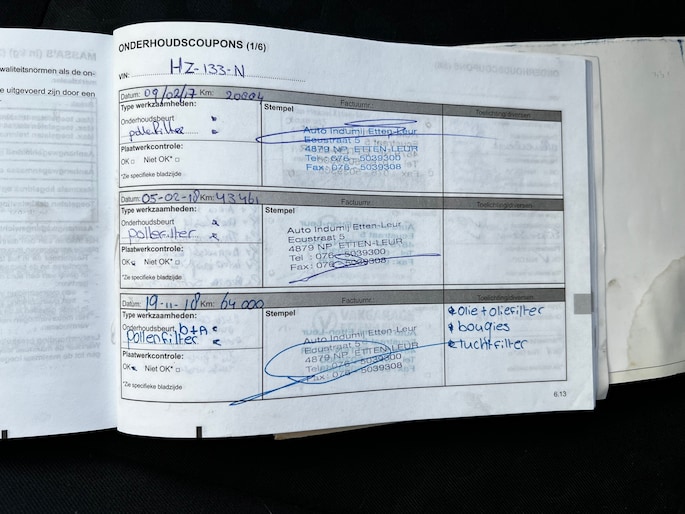 waliteitsnormen als de on-
e uitgevoerd zijn door een
ONDERHOUDSCOUPONS (1/6)
VIN: HZ-133-N
Datum: 09/02/17 Km: 20894
Factuurnr.
Toelichting/diversen
Type werkzaamheden:
Onderhoudsbeurt
pollefilter
Plaatwerkcontrole:
OK Niet OK*
*Zie specifieke bladzijde
Stempel
Auto Indumij Etten-Leur
Ecustraat 5
4879 NP ETTEN-LEUR
Tel : 076 - 5039300
Fax : 076 - 5039308
Datum: 05-02-18 Km: 43461
Factuurnr.
Toelichting/diversen
Type werkzaamheden:
Onderhoudsbeurt
pollenfilter
Plaatwerkcontrole:
OK Niet OK*
*Zie specifieke bladzijde
Stempel
Auto Indumij Etten-Leur
Ecustraat 5
4879 NP ETTEN-LEUR
Tel : 076 - 5039300
Fax : 076 - 5039308
Datum: 19-11-18 Km: 64000
Factuurnr.
Toelichting/diversen
Type werkzaamheden:
Onderhoudsbeurt b+A
pollenfilter
Plaatwerkcontrole:
OK Niet OK*
*Zie specifieke bladzijde
Stempel
Auto Indumij Etten-Leur
Ecustraat 5
4879 NP ETTEN-LEUR
Tel : 076 - 5039300
Fax : 076 - 5039308
* olie + oliefilter
* bougies
* luchtfilter
6.13